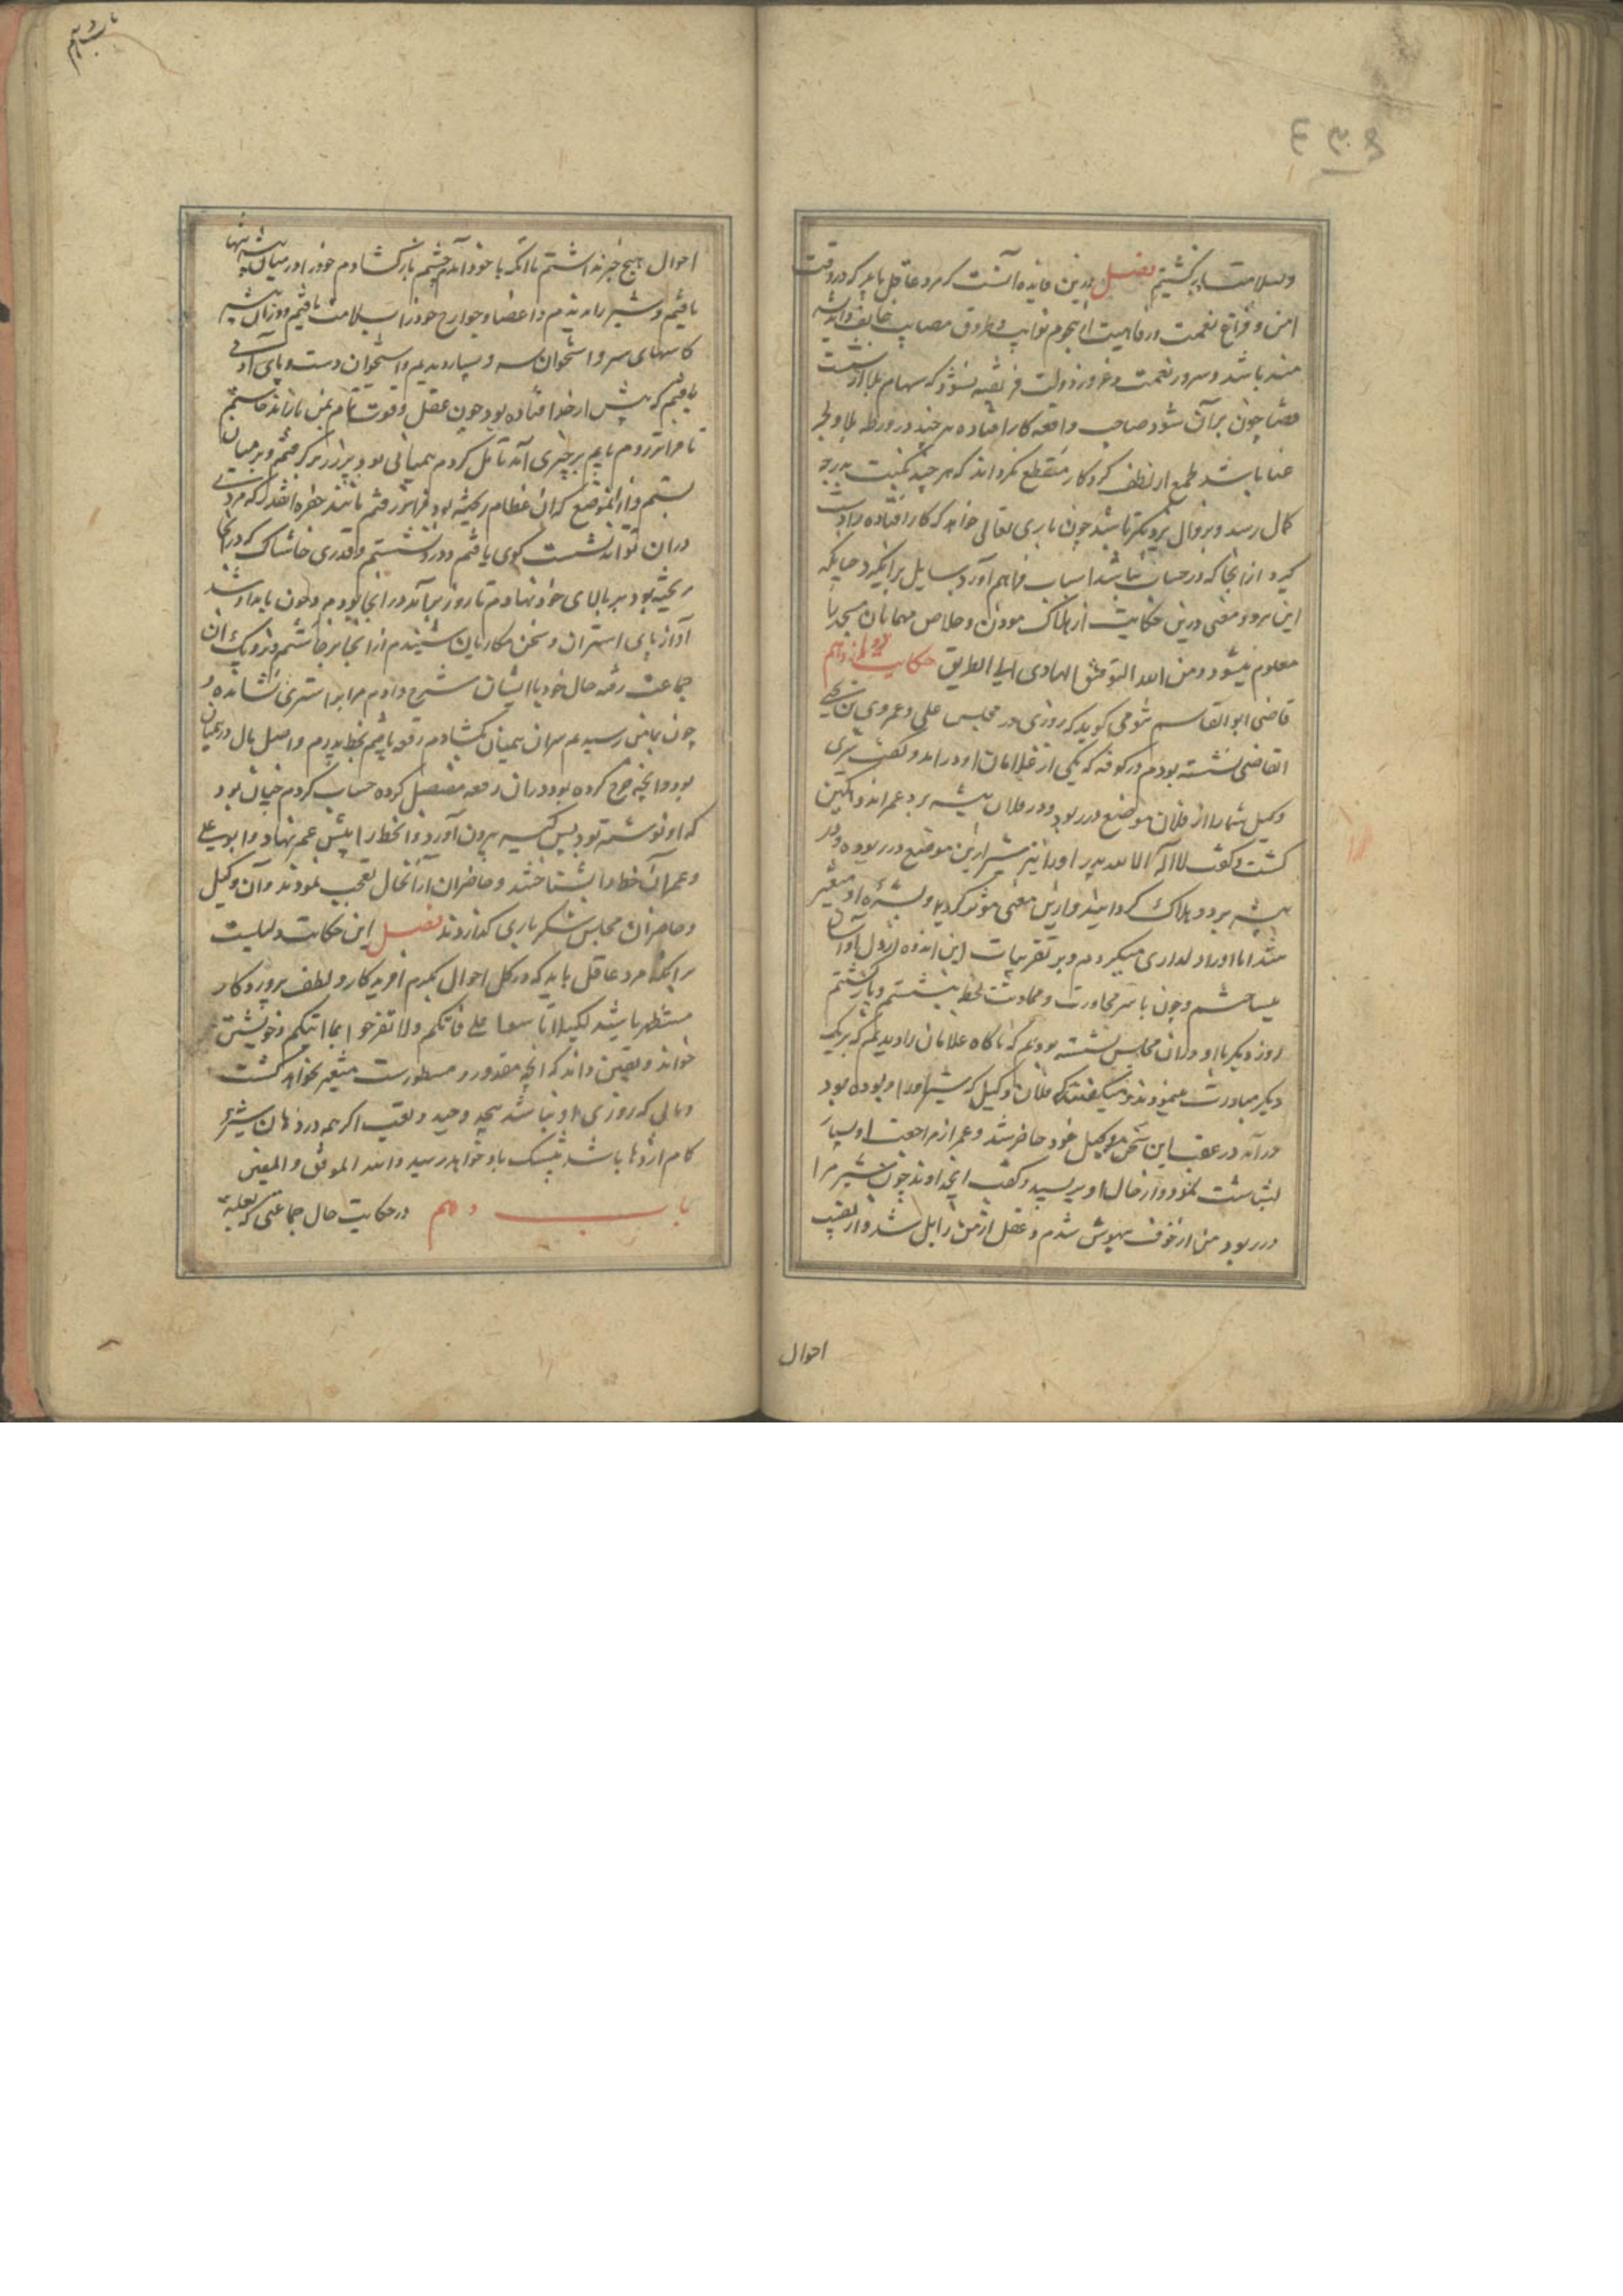 وبسلامت باز کشتیم فصل درین فایده آنست که مرد عاقل باید که در وقت
امن و فراغ نعمت و رفاهیت از هجوم نوایب و طروق مصایب خایف و اندیشه
مند باشد و بسرور نعمت و غرور دولت فریفته نشود که سهام بلا از شست
قضا چون بران شود صاحب واقعه کار افتاده هر چند در ورطه بلا و لجه
عنا باشد طمع از لطف کردکار منقطع نکرداند که هر چند نکبت بدرجه
کمال رسد و بزوال نزدیکتر باشد چون باری تعالی خواهد که کار افتاده را دست
کیرد از انجا که در حساب نباشد اسباب فراهم آورد و وسایل برانکیزد چنانکه
این هر دو معنی درین حکایت از هلاک موذن و خلاص مهمانان مسجد
معلوم میشود ومن الله التوفیق الهادی الی الطریق حکایت دوازدهم
قاضی ابو القاسم تنوخی کوید که روزی در مجلس علی و عمر و بن یحیی
القاضی نشسته بودم در کوفه که یکی از غلامان او در امد و کفت شیری
وکیل شما را از فلان موضع در ربود و در فلان بیشه برد عمر اندوهکین
کشت و کفت لا اله الا الله پدر او را نیز شیر ازین موضع در ربوده و در
بیشه برد و هلاک کردانید و ازین معنی متوثر کردید و بشره او متغیر
شد اما او را دلداری میکردم و بر تقریبات این اندوه از دل او آسان
میساختم و چون با سر مجاورت و محادثت لحظه بنشستم و باز کشتم
روز دیکر با او در ان مجلس نشسته بودیم که ناکاه غلامان را دیدیم که بر یک
دیکر مبادرت مینمودند و میکفتند که فلان وکیل که شیر او را ربوده بود
در آمد در عقب این سخن وکیل خود حاضر شد و عمر از مراجعت او بسیار
بشاشت نمود و از حال او بپرسید و کفت ای خداوند چون شیر مرا
در ربود من از خوف بیهوش شدم و عقل از من زایل شد و از تعقیب
احوال
احوال هیچ خبر نداشتم تا انکه با خود آمدم چشم باز کشادم خود را در میان بیشه تنها
یافتم و شیر را ندیدم و اعضا و جوارح خود را بسلامت یافتم و در ان بیشه
کاسهای سر و استخوان سه و بسیار دیدم و استخوان دست و پای آدمی
یافتم که پیش از خدا افتاده بود چون عقل و قوت تمام بمن باز آمد خاستم
تا فراتر روم پایم بر چیزی آمد تامل کردم همیانی بود پر زر بر کرفتم و بر میان
بستم و از انموضع که ان عظام ریخته بود فراتر رفتم مانند حفره انقدر که مردی
در ان تواند نشست کوی یافتم و در و نشستم و قدری خاشاک که در انجا
ریخته بود بر بالای خود نهادم تا روز برآمد در انجا بودم و چون بامداد شد
آواز پای استران و سخن مکاریان شنیدم از انجا برخاستم و نزدیک ان
جماعت رفته حال خود با ایشان شرح دادم مرا بر استری نشانده و
چون بمامن رسیدم سر ان همیان بکشادم رقعه یافتم بخط پدرم و اصل مال در همیان
بود و انچه خرج کرده بود در ان رقعه مفصل کرده حساب کردم همان بود
که او نوشته بود پس کیسه بیرون آورد و انخط را پیش عمر نهاد و ابو علی
و عمر آن خط را بشناختند و حاضران از انحال تعجب نمودند و آن وکیل
و حاضران مجلس شکر باری کذاردند فصل این حکایت دلیلست
بر انکه مرد عاقل باید که در کل احوال بکرم افریدکار و لطف پروردکار
مستظهر باشد لکیلا تاسوا علی فاتکم ولا تفرحوا بما اتیکم بر خویشتن
خواند و یقین داند که انچه مقدور و مسطورست متغیر نخواهد کشت
و مالی که روزی او نباشد بجد و جهد و تعب اکر همه در دهان شیر و
کام اژدها باشد بیشک باو خواهد رسید والله الموفق والمعین
باب دهم در حکایت حال جماعتی که بغلبه